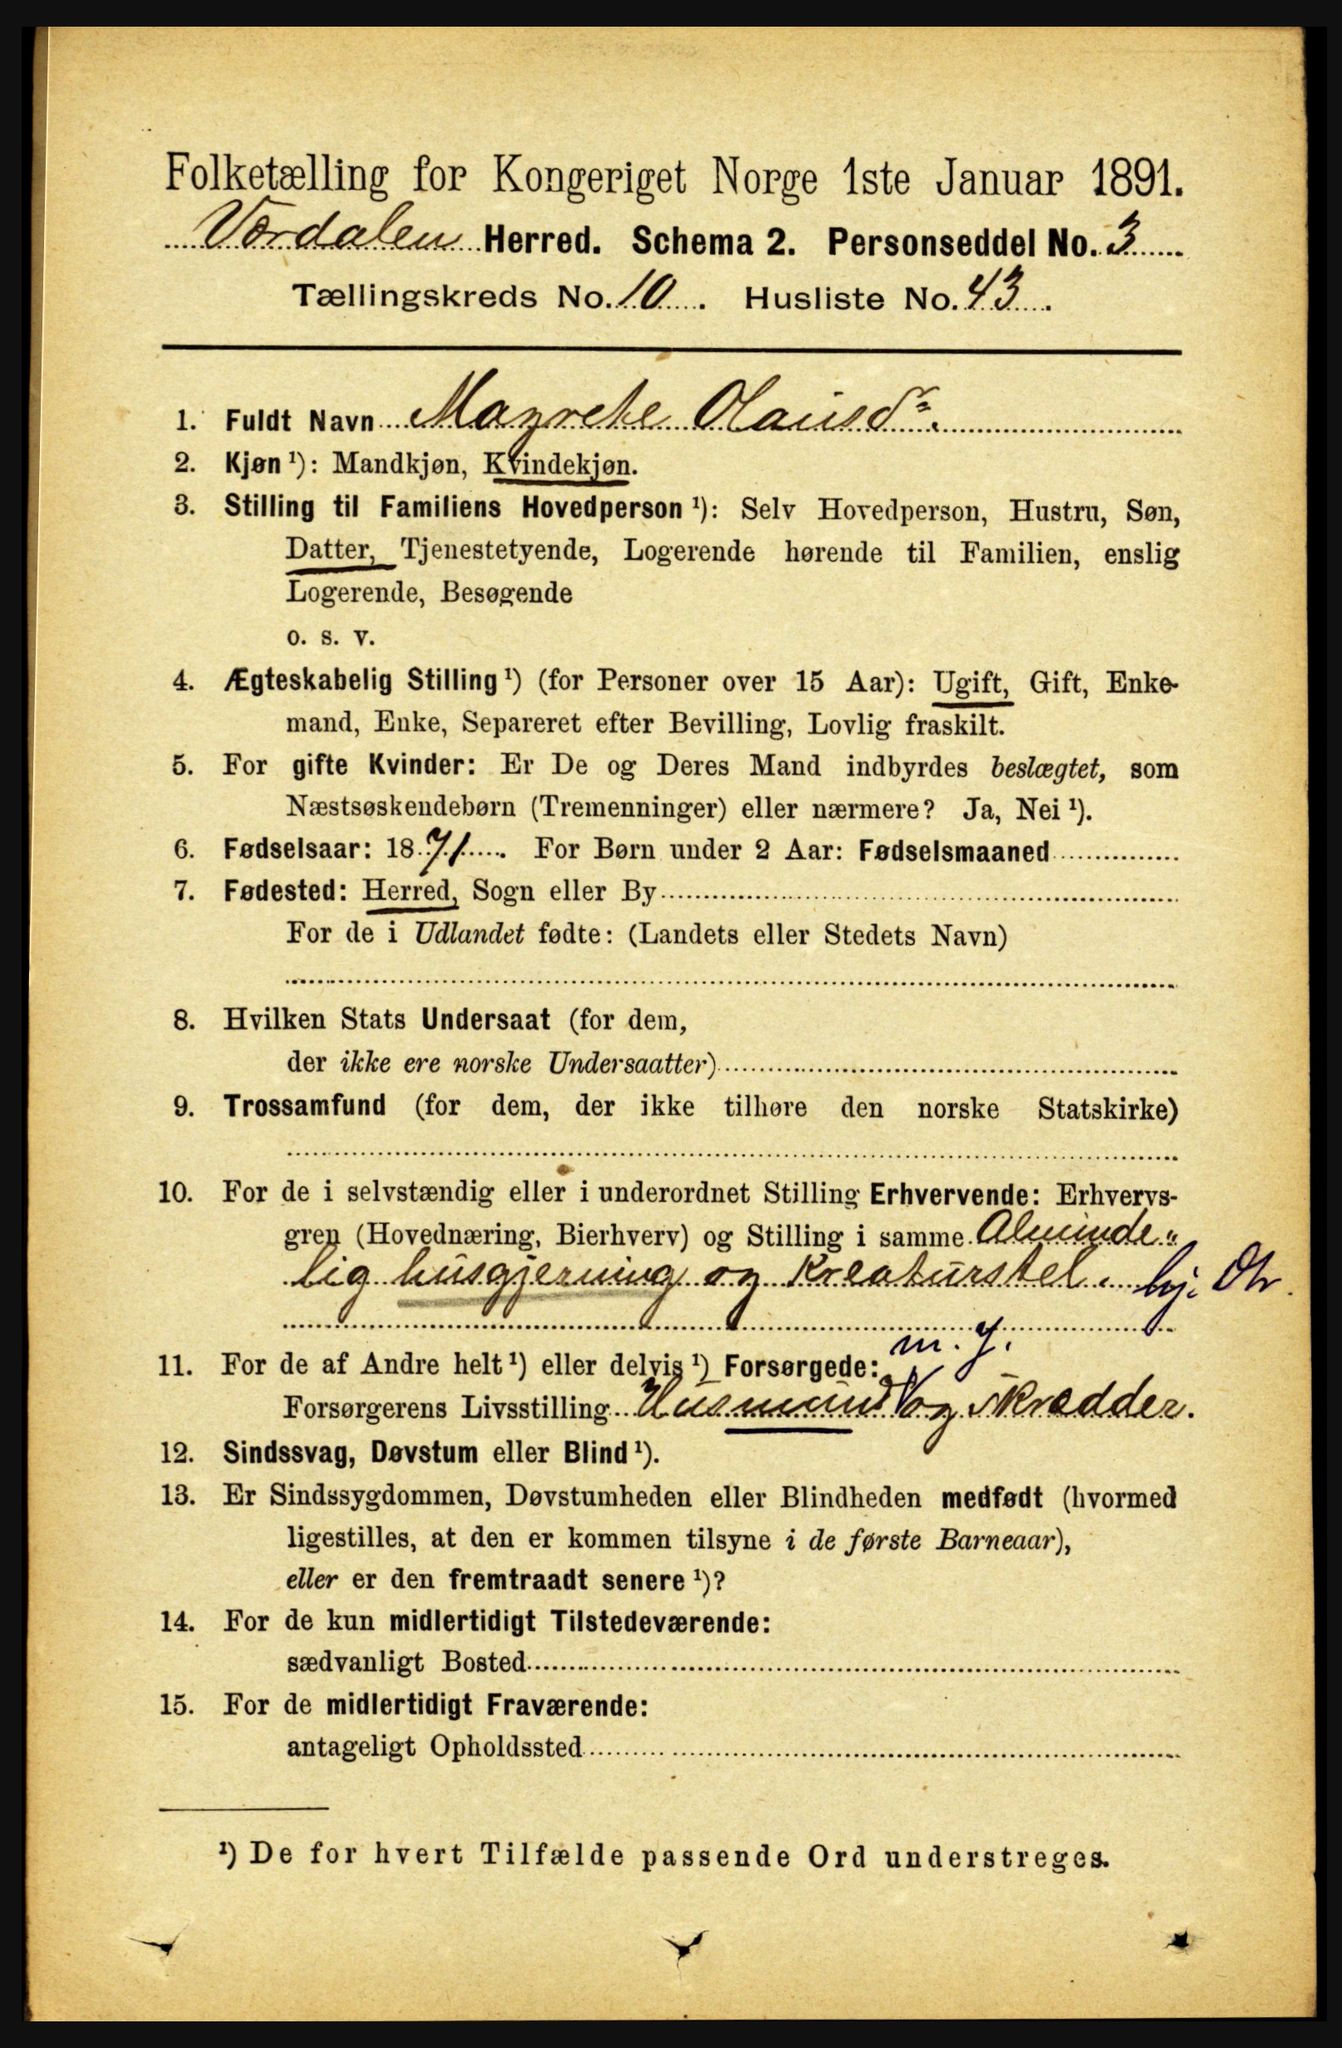 Folketælling for Kongeriget Norge 1ste Januar 1891.
Værdalen Herred. Schema 2. Personseddel No. 3
Tællingskreds No. 10. Husliste No. 43.
1. Fuldt Navn Magrete Olausdr.
2. Kjøn ¹): Mandkjøn, Kvindekjøn.
3. Stilling til Familiens Hovedperson ¹): Selv Hovedperson, Hustru, Søn,
Datter, Tjenestetyende, Logerende hørende til Familien, enslig
Logerende, Besøgende
o. s. v.
4. Ægteskabelig Stilling ¹) (for Personer over 15 Aar): Ugift, Gift, Enke-
mand, Enke, Separeret efter Bevilling, Lovlig fraskilt.
5. For gifte Kvinder: Er De og Deres Mand indbyrdes beslægtet, som
Næstsøskendebørn (Tremenninger) eller nærmere? Ja, Nei ¹).
6. Fødselsaar: 1871. For Børn under 2 Aar: Fødselsmaaned
7. Fødested: Herred, Sogn eller By
For de i Udlandet fødte: (Landets eller Stedets Navn)
8. Hvilken Stats Undersaat (for dem,
der ikke ere norske Undersaatter)
9. Trossamfund (for dem, der ikke tilhøre den norske Statskirke)
10. For de i selvstændig eller i underordnet Stilling Erhvervende: Erhvervs-
gren (Hovednæring, Bierhverv) og Stilling i samme Alminde„
lig husgjerning og Kreaturstel. hj. Dtr.
m. J.
11. For de af Andre helt ¹) eller delvis ¹) Forsørgede:
Forsørgerens Livsstilling Husmand og skrædder.
12. Sindssvag, Døvstum eller Blind ¹).
13. Er Sindssygdommen, Døvstumheden eller Blindheden medfødt (hvormed
ligestilles, at den er kommen tilsyne i de første Barneaar),
eller er den fremtraadt senere ¹)?
14. For de kun midlertidigt Tilstedeværende:
sædvanligt Bosted
15. For de midlertidigt Fraværende:
antageligt Opholdssted
¹) De for hvert Tilfælde passende Ord understreges.